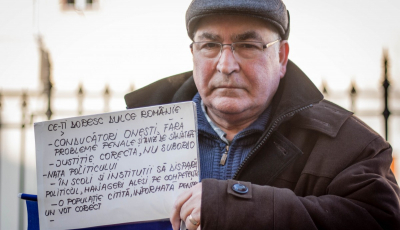 CE-ȚI DORESC DULCE ROMÂNIE
- CONDUCĂTORI ONEȘTI, FĂRĂ
PROBLEME PENALE
- JUSTIȚIE CORECTĂ, NU SUBORDO
NATĂ POLITICULUI
- ÎN ȘCOLI ȘI INSTITUȚII SĂ DISPARĂ
POLITICUL, MANAGERI ALEȘI PE COMPETENȚE
- O POPULAȚIE CITITĂ, INFORMATĂ PENTRU
UN VOT CORECT